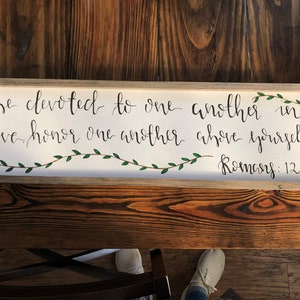 be devoted to one another in
love, honor one another above yoursel
Romans: 12